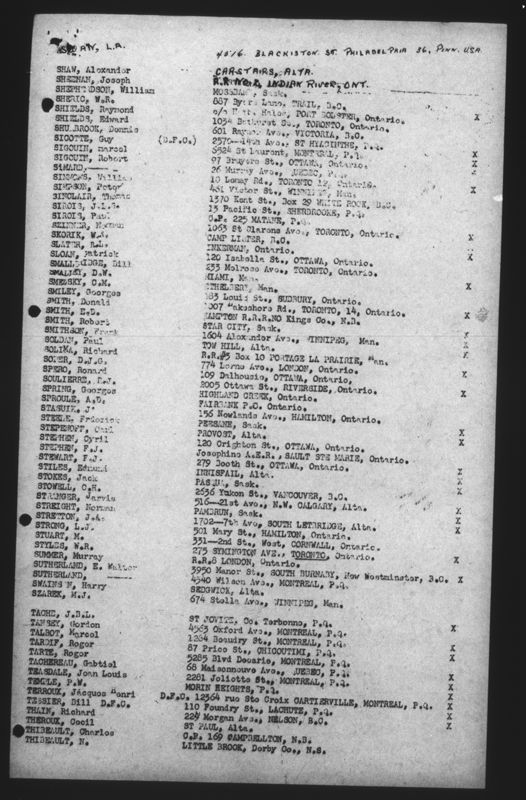 L.A. 4516 BLACKISTON ST. PHILADELPHIA 36, PENN. USA
SHAW, Alexander CARSTAIRS, ALTA.
SHEENAN, Joseph R.R. NO.2, INDIAN RIVER, ONT.
SHEPHERDSON, William Sask.
SHERIC, W.R. 887 Byers Lane, TRAIL, B.C.
SHIELDS, Raymond c/o PORT COLBORNE, Ontario. X
SHIELDS, Edward 1054 Bathurst St., TORONTO, Ontario.
SHULBROOK, Dennis 601 Ave., VICTORIA, B.C.
SICOTTE, Guy (D.F.C.) 2570-14th Ave., ST HYACINTHE, P.Q.
SIGOUIN, Marcel St Laurent, MONTREAL, P.Q. X
SIGOUIN, Robert 97 Bruyere St., OTTAWA, Ontario. X
SIMARD, ---- 26 Murray Ave., QUEBEC, P.Q.
SIMMONS, William 10 Rd., TORONTO 12, Ontario.
SIMPSON, Peter 451 Victor St., WINNIPEG, Man. X
SINCLAIR, Thomas 1370 Kent St., Box 29 WHITE ROCK, B.C.
SIROIS, J.L.G. 13 Pacific St., SHERBROOKE, P.Q.
SIROIS, Paul C.P. 225 MATANE, P.Q.
SKINNER, Norman 1063 St Clarens Ave., TORONTO, Ontario.
SKORIK, W. CAMP LISTER, B.C. X
SLATER, R.L. INKERMAN, Ontario.
SLOAN, Patrick 120 Isabella St., OTTAWA, Ontario. X
SMALLRIDGE, Bill 233 Melrose Ave., TORONTO, Ontario.
SMALLEY, D.W. MIAMI, Man.
SMELSKY, C.M. ETHELBERT, Man. X
SMILEY, Georges 183 Louis St., SUDBURY, Ontario.
SMITH, Donald Lakeshore Rd., TORONTO, 14, Ontario. X
SMITH, E.D. HAMPTON R.R.NO Kings Co., N.B.
SMITH, Robert STAR CITY, Sask.
SMITHSON, Frank 1604 Alexander Ave., WINNIPEG, Man. X
SOLDAN, Paul TOW HILL, Alta. X
SOLIKA, Richard R.R.#3 Box 10 PORTAGE LA PRAIRIE, Man. X
SOPER, D.J.G. 774 Lorne Ave., LONDON, Ontario.
SPERO, Ronard 109 Dalhousie, OTTAWA, Ontario. X
SOULIERRE, R.J. 2005 Ottawa St., RIVERSIDE, Ontario.
SPRING, Georges HIGHLAND CREEK, Ontario.
SPROULE, A.D. FAIRBANK P.O. Ontario.
STASUIK, J 156 Newlands Ave., HAMILTON, Ontario.
STEELE, Frederick PERSANE, Sask. X
STEPENOFF, Carl PROVOST, Alta. X
STEPHEN, Cyril 120 Crighton St., OTTAWA, Ontario.
STEPHEN, F.J. Josephine A.E.R., SAULT STE MARIE, Ontario.
STEWART, F.J. 279 Booth St., OTTAWA, Ontario.
STILES, Edmund INNISFAIL, Alta. X
STOKES, Jack Sask. X
STOWELL, C.H. 2636 Yukon St., VANCOUVER, B.C. X
STRINGER, Jarvis 516-21st Ave., N.W. CALGARY, Alta.
STREIGHT, Norman PAMBRUN, Sask. X
STRETTON, J.A. 1702-7th Ave, SOUTH LETBRIDGE, Alta. X
STRONG, L.J. 501 Mary St., HAMILTON, Ontario. X
STUART, M. 331-2nd St., West, CORNWALL, Ontario.
STYLES, W.R. 275 SYMINGTON AVE., TORONTO, Ontario. X
SUMMER, Murray R.R.8 LONDON, Ontario.
SUTHERLAND, E. Walter 3950 Manor St., SOUTH BURNABY, New Westminster, B.C. X
SUTHERLAND, ---- 4540 Wilson Ave., MONTREAL, P.Q.
SWAINSON, Harry SEDGWICK, Alta.
SZAREK, M.J. 674 Stella Ave., WINNIPEG, Man.
TACHE, J.B.L. ST JOVITE, Co. Terbonne, P.Q.
TAMSEY, Gordon 4563 Oxford Ave., MONTREAL, P.Q. X
TALBOT, Marcel 1284 Beaudry St., MONTREAL, P.Q.
TARDIF, Roger 87 Price St., CHICOUTIMI, P.Q. X
TARTE, Roger 5285 Blvd Decarie, MONTREAL, P.Q. X
TACHEREAU, Gabriel 68 Maisonneuve Ave., QUEBEC, P.Q. X
TEASDALE, Jean Louis 2281 Joliette St., MONTREAL, P.Q. X
TEMPLE, P.W. MORIN HEIGHTS, P.Q.
TERROUX, Jacques Henri D.F.C. 12564 rue Ste Croix CARTIERVILLE, MONTREAL, P.Q. X
TESSIER, Bill D.F.C. 110 Foundry St., LACHUTE, P.Q. X
THAIN, Richard 224 Morgan Ave., NELSON, B.C. X
THEROUX, Cecil ST PAUL, Alta. X
THIBEAULT, Charles C.P. 169 CAMPBELLTON, N.B.
THIBEAULT, N. LITTLE BROOK, Derby Co., N.S.